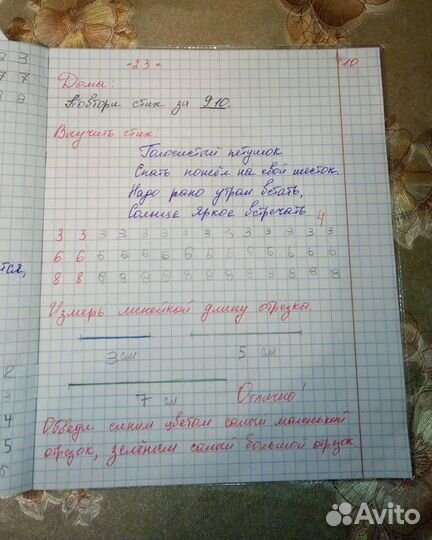 -23-
10
Дома:
Повтори стих за 9.10.
Выучить стих:
Голосистый петушок
Спать пошёл на свой шесток.
Надо рано утром встать,
Солнце яркое встречать.
4
3 3 3 3 3 3 3 3 3 3 3 3 3
6 6 6 6 6 6 6 6 6 6 6 6 6
8 8 8 8 8 8 8 8 8 8 8 8 8
Измерь линейкой длину отрезка.
3 см
5 см
7 см
Отлично!
Обведи синим цветом самый маленький
отрезок, зелёным самый большой отрезок.
тся,
2
3
4
5
6
Avito